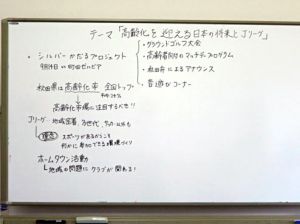 テーマ「高齢化を迎える日本の将来とJリーグ」
・シルバーかだるプロジェクト
9月14日 vs 町田ゼルビア
・グラウンドゴルフ大会
・高齢者向けのマッチデープログラム
・秋田弁によるアナウンス
・昔遊びコーナー
秋田県は高齢化率 全国トップ
高齢化市場に注目するべき!!
Jリーグ…地域密着、多世代、サッカー以外も
理念 スポーツがあるからこそ
何かに参加できる環境づくり
ホームタウン活動
地域の問題にクラブが関わる!